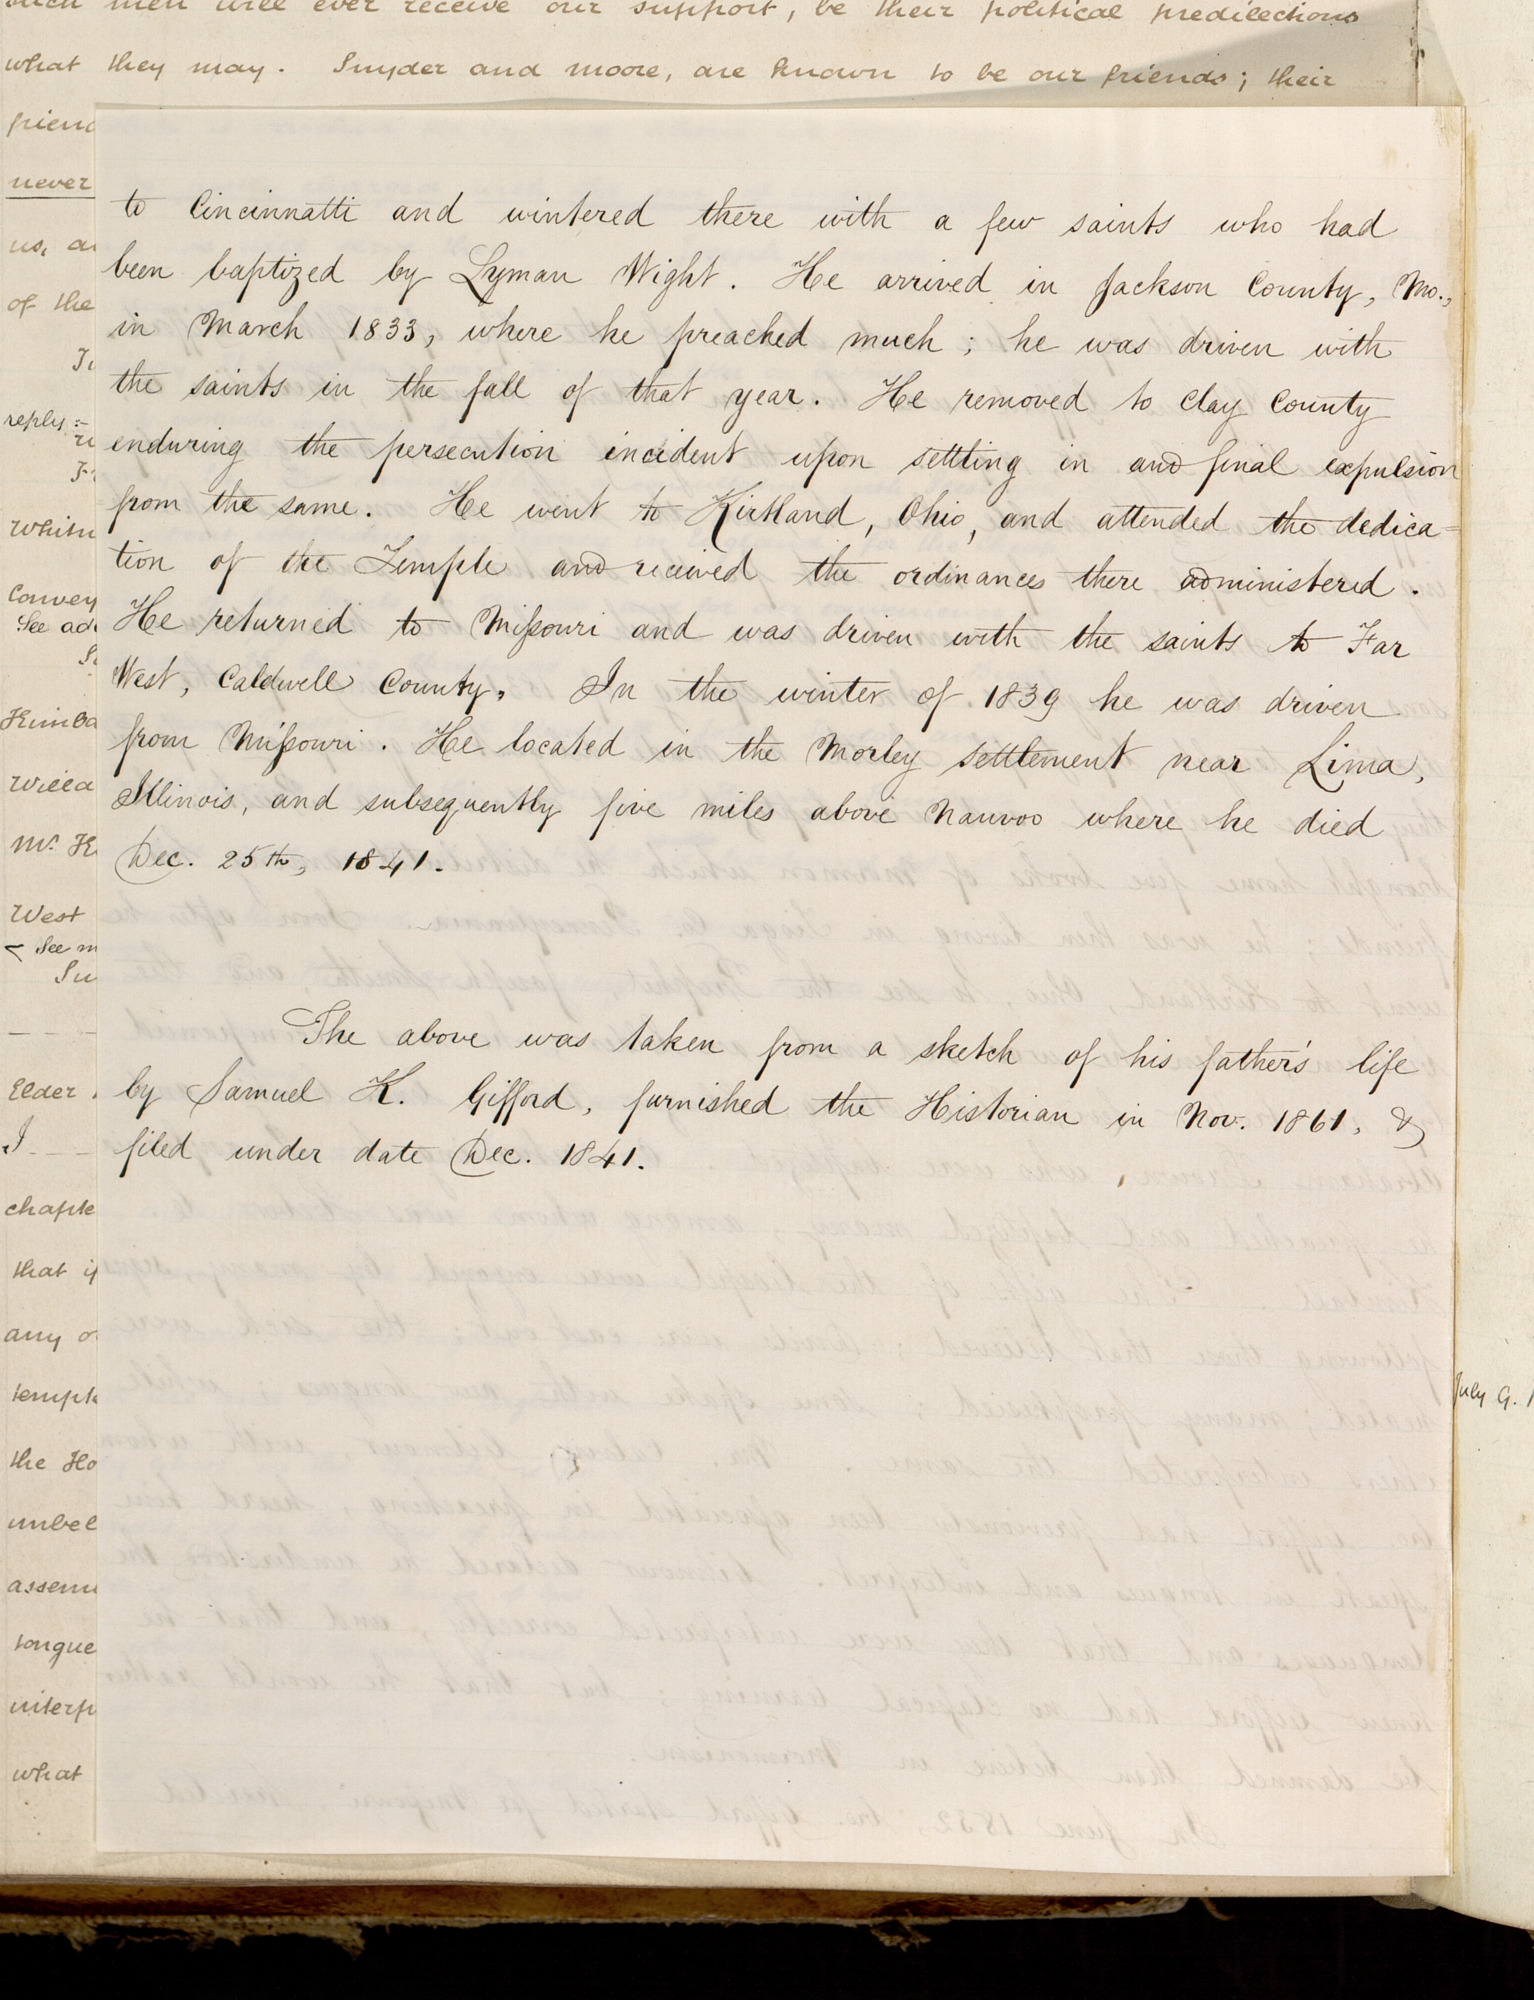 such men will ever receive our support, be their political predilections
what they may. Snyder and Moore, are known to be our friends; their
friend
never
us, an
of the
reply:-
Whitn
Convey
See add
Kimba
Willa
Mr. K
West
See m
Su
Elder
I
chapte
that if
any o
temple
the Ho
unbel
assem
tongue
interp
what
to Cincinnatti and wintered there with a few saints who had
been baptized by Lyman Wight. He arrived in Jackson County, Mo.,
in March 1833, where he preached much; he was driven with
the saints in the fall of that year. He removed to Clay County
enduring the persecution incident upon settling in and final expulsion
from the same. He went to Kirtland, Ohio, and attended the dedica-
tion of the Temple and recieved the ordinances there administered.
He returned to Missouri and was driven with the saints to Far
West, Caldwell County. In the winter of 1839 he was driven
from Missouri. He located in the Morley settlement near Lima,
Illinois, and subsequently five miles above Nauvoo where he died
Dec. 25th, 1841.
The above was taken from a sketch of his father's life
by Samuel K. Gifford, furnished the Historian in Nov. 1861, &
filed under date Dec. 1841.
July 9. 1